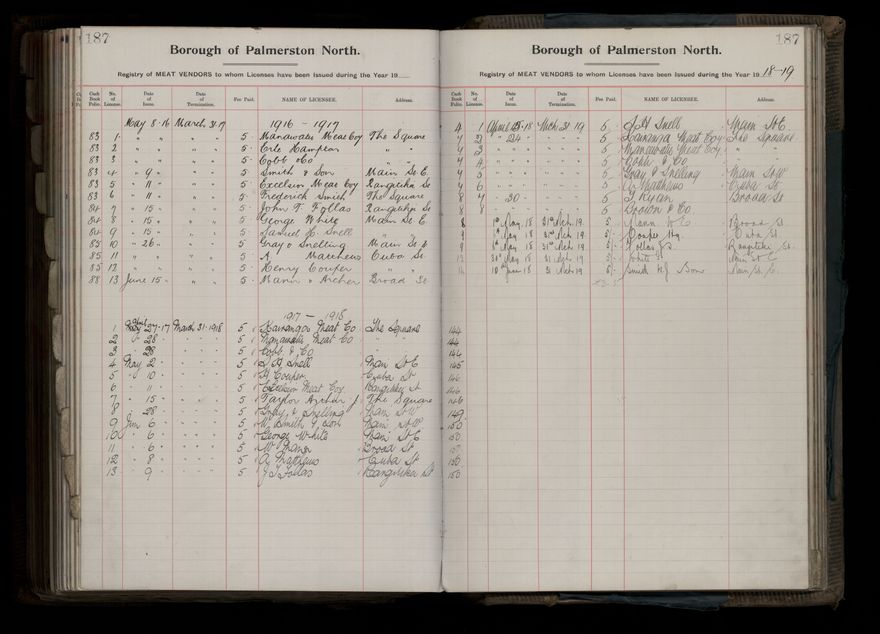 187
Borough of Palmerston North.
Registry of MEAT VENDORS to whom Licenses have been Issued during the Year 19
Cash Book Folio. No. of License. Date of Issue. Date of Termination. Fee Paid. NAME OF LICENSEE. Address.
1916 - 1917
83 1 May 8-16 March 31-17 5 Manawatu Meat Coy The Square
83 2 " " " " 5 " "
83 3 " " " " 5 Cobb & Co " "
83 4 " 9 " " 5 Smith & Son Main St E.
83 5 " 11 " " 5 Excelsior Meat Coy Rangitikei St
83 6 " 11 " " 5 Frederick Smith The Square
84 7 " 15 " " 5 John T Follas Rangitikei St
84 8 " 15 " " 5 George White Main St. E.
84 9 " 15 " " 5 Samuel H. Snell " "
85 10 " 26 " " 5 Gray & Snelling Main St
85 11 " " " " 5 A Matthews Cuba St
85 12 " " " " 5 Henry Couper " "
88 13 June 15 " " 5 Mann & Archer Broad St
1917 - 1918
1 27-17 March 31-1918 5 Kairanga Meat Co The Square
2 " 28 " " 5 Manawatu Meat Co "
3 " 28 " " 5 Cobb & Co "
4 May 2 " " 5 S H Snell Main St E
5 " 10 " " 5 H Couper Cuba St
6 " 11 " " 5 Excelsior Meat Coy Rangitikei St
7 " 15 " " 5 Taylor Archer The Square
8 " 28 " " 5 Gray & Snelling Main St W
9 Jun 6 " " 5 W. Smith & Son Main St W
10 " 6 " " 5 George White Main St E
11 " 6 " " 5 Broad St
12 " 8 " " 5 A Matthews Cuba St
13 " 9 5 J T Follas Rangitikei St
187
Borough of Palmerston North.
Registry of MEAT VENDORS to whom Licenses have been Issued during the Year 1918-19
Cash Book Folio. No. of License. Date of Issue. Date of Termination. Fee Paid. NAME OF LICENSEE. Address.
4 1 April 18 Mch 31 19 5 S H Snell Main St E.
4 2 " 24 " " 5 Kairanga Meat Coy The Square
4 3 " " " " 5 Manawatu Meat Coy "
4 4 " " " " 5 Cobb & Co "
4 5 " " " " 5 Gray & Snelling Main St W
4 6 " " " " 5 A Matthews Cuba St
8 7 " 30 " " 5 Ryan Broad St
8 8 " " " " 5 Brown & Co
8 1st May 18 31st Mch 19 5 Mann Broad St
May 18 31st Mch 19 5 Couper Hy. Cuba St
9 May 18 31st Mch 19 5 Follas J.T. Rangitikei St.
May 18 31 Mch 19 5 White G. Main St E
10th June 18 31 Mch 19 5 Smith & Son Main St.
144
144
144
145
146
146
146
149
150
150
150
150